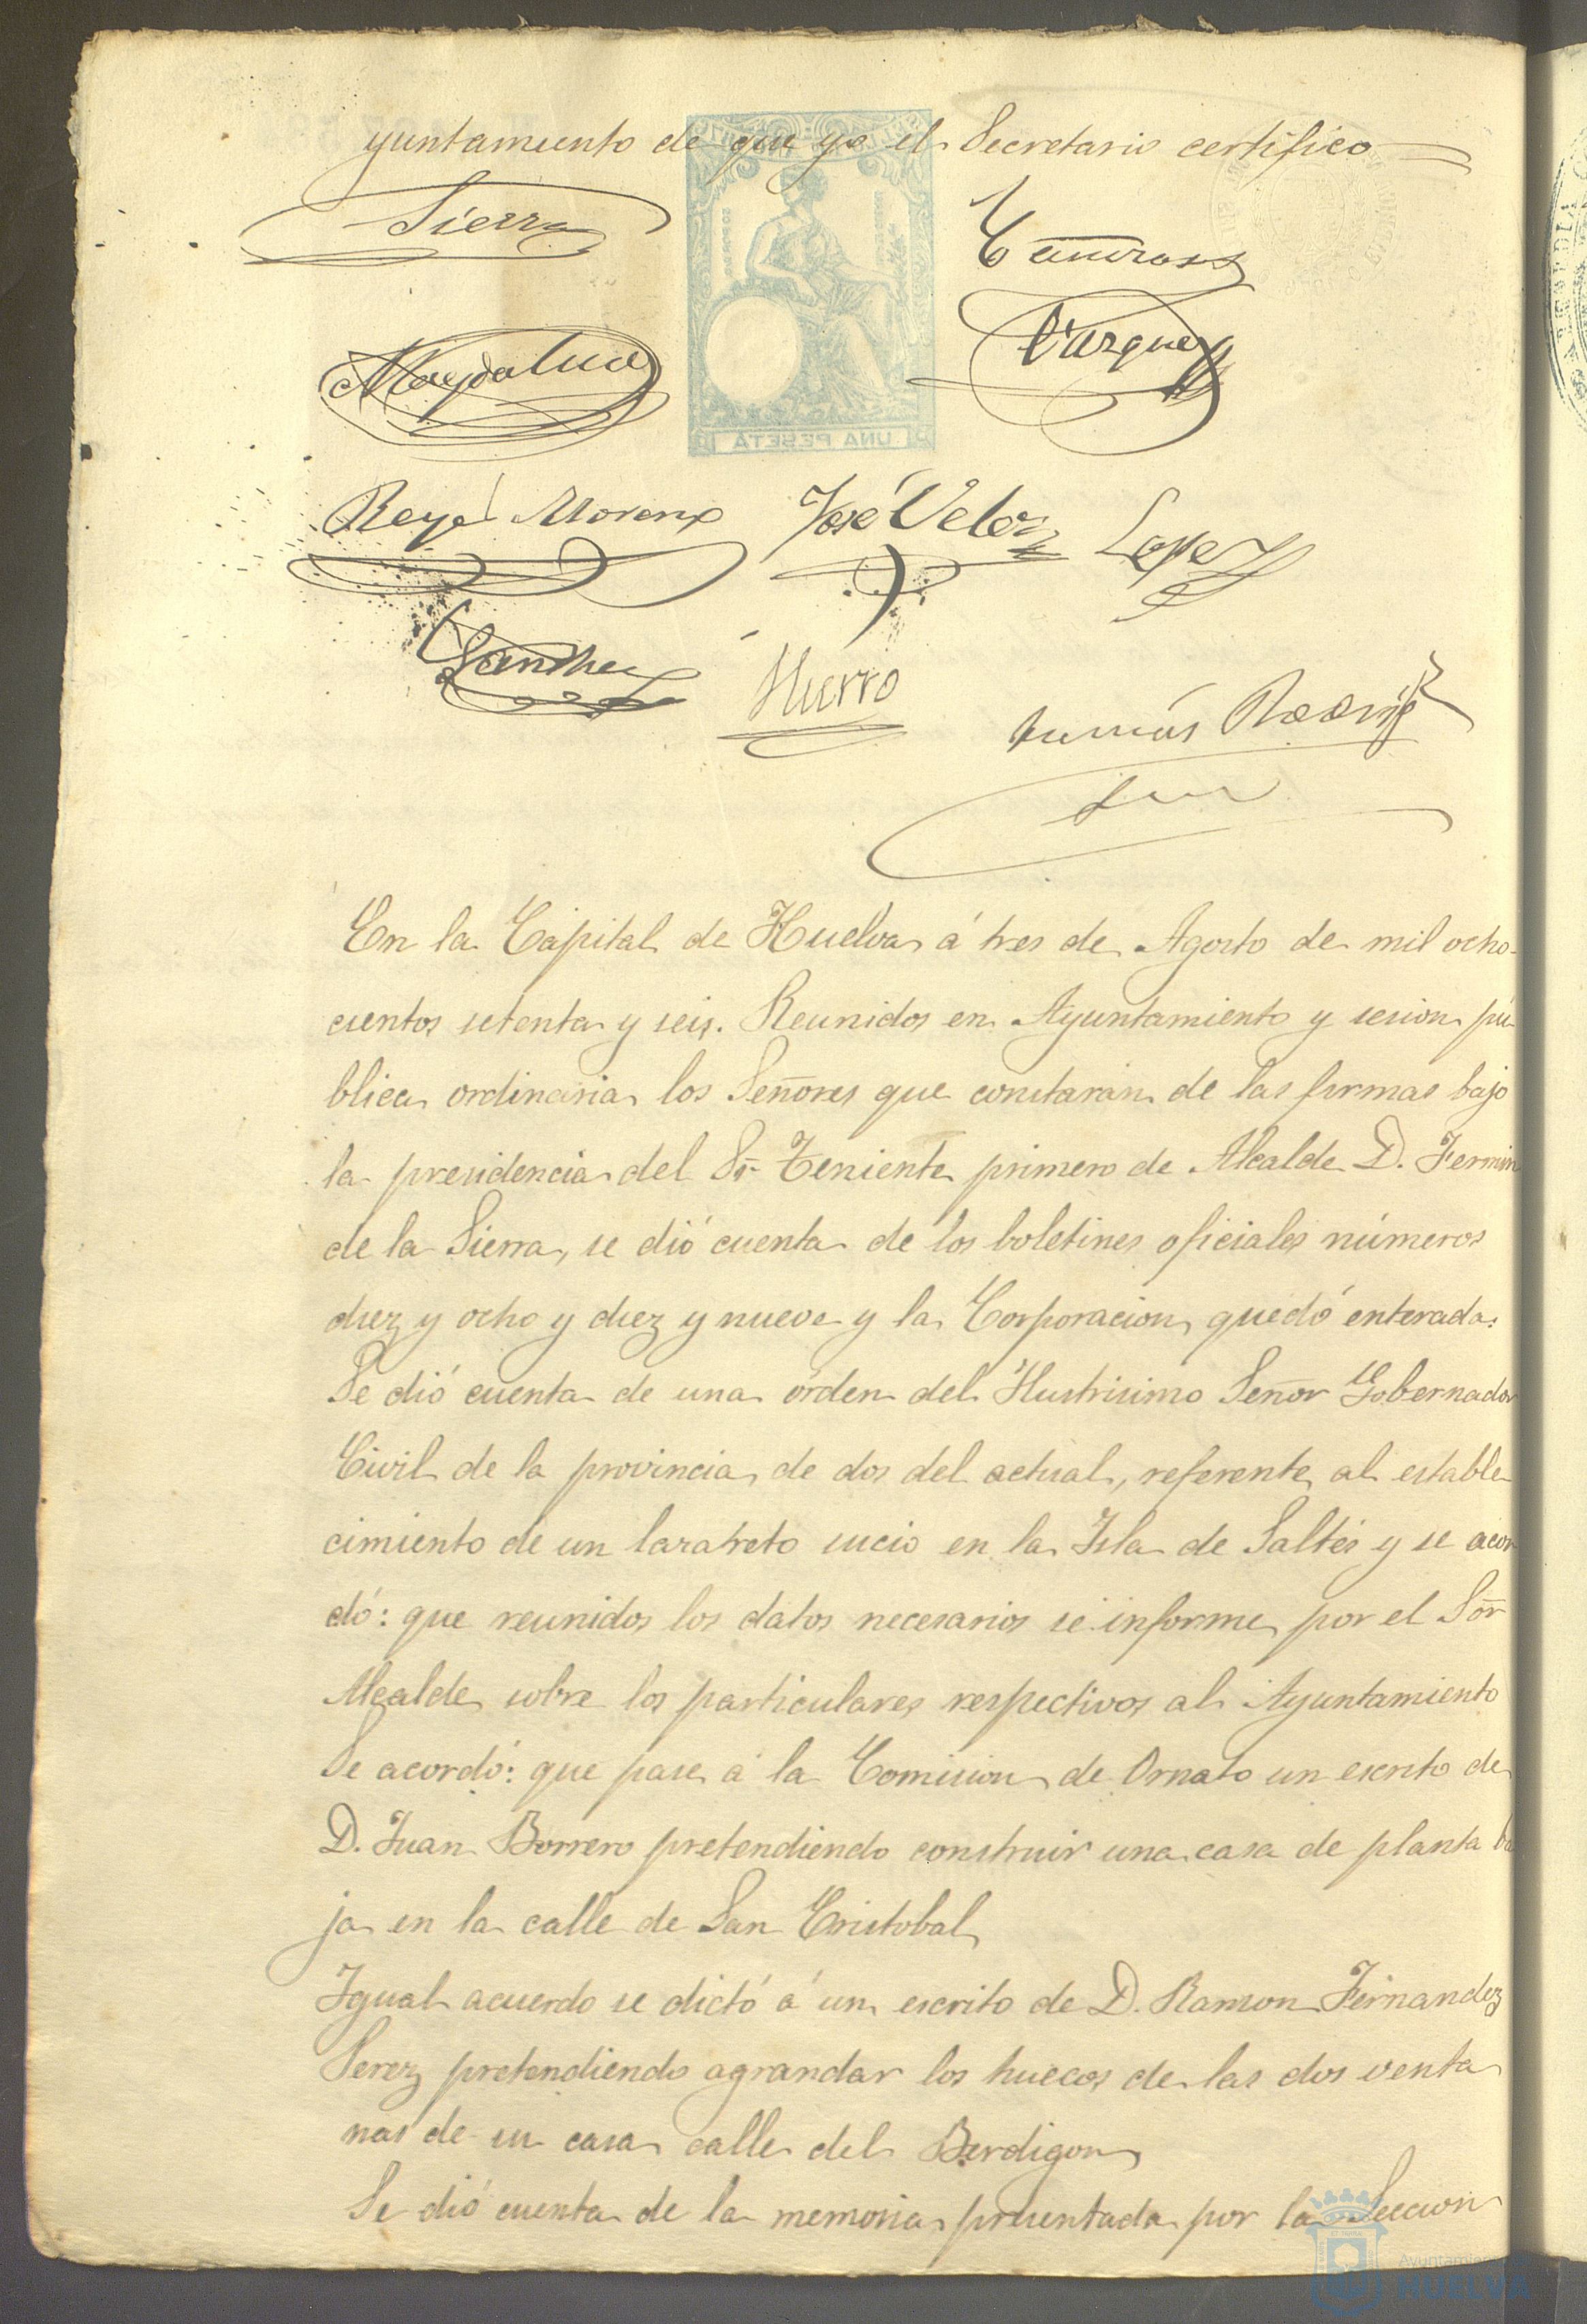 yuntamiento de que yo el Secretario certifico
Sierra
Vazquez
Magdalena
UNA PESETA
Reyes Moreno José Velez Lopez
Sanchez Hierro
Tomás Rodrig
En la Capital de Huelva á tres de Agosto de mil ocho-
cientos setenta y seis. Reunidos en Ayuntamiento y sesion pú-
blica ordinaria los Señores que constarán de las firmas bajo
la presidencia del Sr. Teniente primero de Alcalde D. Fermin
de la Sierra, se dió cuenta de los boletines oficiales números
diez y ocho y diez y nueve y la Corporacion quedó enterada.
Se dió cuenta de una órden del Ilustrisimo Señor Gobernador
Civil de la provincia de dos del actual, referente al estable-
cimiento de un lazareto sucio en la Isla de Saltés y se acor
dó: que reunidos los datos necesarios se informe por el Sõr
Alcalde sobre los particulares respectivos al Ayuntamiento
Se acordó: que pase á la Comision de Ornato un escrito de
D. Juan Borrero pretendiendo construir una casa de planta ba
ja en la calle de San Cristobal
Igual acuerdo se dictó á un escrito de D. Ramon Fernandez
Serez pretendiendo agrandar los huecos de las dos venta
nas de su casa calle del Berdigon
Se dió cuenta de la memoria presentada por la Seccion
Ayuntamiento
HUELVA